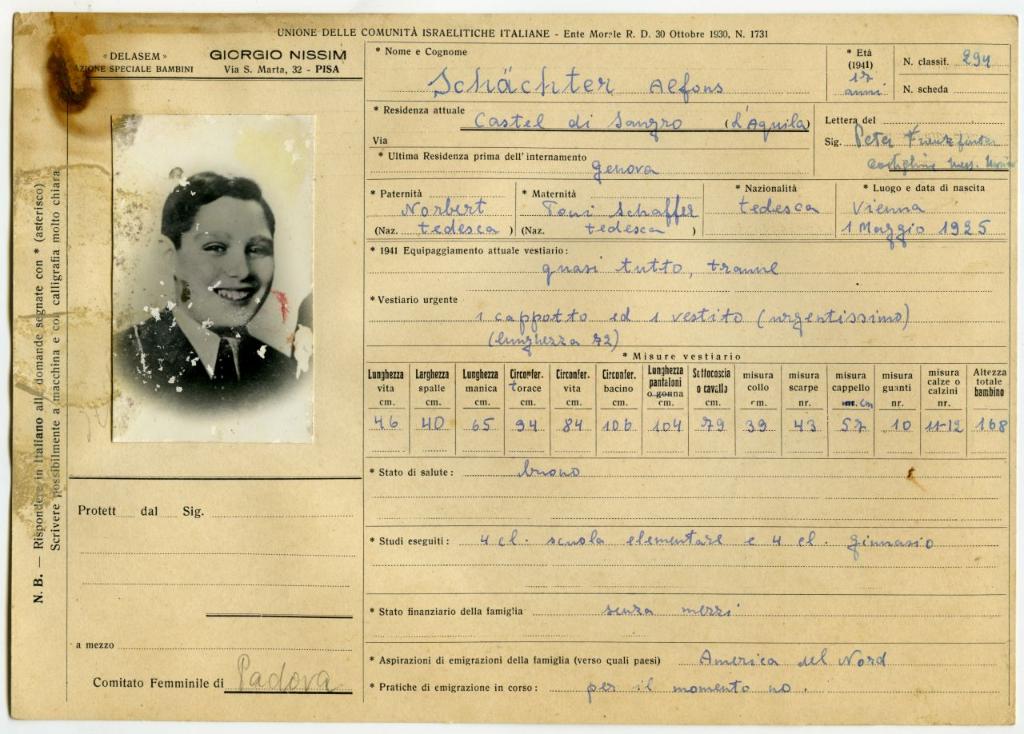 UNIONE DELLE COMUNITÀ ISRAELITICHE ITALIANE - Ente Morale R. D. 30 Ottobre 1930, N. 1731
« DELASEM » GIORGIO NISSIM
AZIONE SPECIALE BAMBINI Via S. Marta, 32 - PISA
* Nome e Cognome
Schächter Alfons
* Età (1941)
17 anni
N. classif. 294
N. scheda
* Residenza attuale
Castel di Sangro (L'Aquila)
Via
Lettera del
Sig. Peter
* Ultima Residenza prima dell'internamento
Genova
* Paternità
Norbert
(Naz. tedesca )
* Maternità
Toni Schaffer
(Naz. tedesca )
* Nazionalità
tedesca
* Luogo e data di nascita
Vienna
1 Maggio 1925
* 1941 Equipaggiamento attuale vestiario:
quasi tutto, tranne
* Vestiario urgente
1 cappotto ed 1 vestito (urgentissimo)
(lunghezza 72)
* Misure vestiario
Lunghezza vita cm. 46
Larghezza spalle cm. 40
Lunghezza manica cm. 65
Circonfer. torace cm. 94
Circonfer. vita cm. 84
Circonfer. bacino cm. 106
Lunghezza pantaloni o gonna cm. 104
Sottocoscia o cavallo cm. 79
misura collo cm. 39
misura scarpe nr. 43
misura cappello nr. cm 57
misura guanti nr. 10
misura calze o calzini nr. 11-12
Altezza totale bambino 168
* Stato di salute: buono
* Studi eseguiti: 4 cl. scuola elementare e 4 cl. ginnasio
* Stato finanziario della famiglia senza mezzi
* Aspirazioni di emigrazioni della famiglia (verso quali paesi) America del Nord
* Pratiche di emigrazione in corso: per il momento no.
Protett dal Sig.
a mezzo
Comitato Femminile di Padova
N. B. — Rispondere in italiano alle domande segnate con * (asterisco)
Scrivere possibilmente a macchina e con calligrafia molto chiara